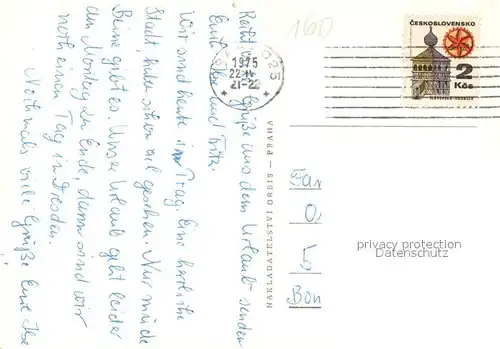 160
ČESKOSLOVENSKO
2
Kčs
025
1975
22.IV.
21-22
Grüße aus dem Urlaub senden
Euch Ilse und Fritz.
Wir sind heute in Prag. Eine herrliche
Stadt, haben schon viel gesehen. Nur müde
Beine gibt es. Unser Urlaub geht leider
am Montag zu Ende, dann sind wir
noch einen Tag in Dresden.
Nochmals viele Grüße Eure Ilse
NAKLADATELSTVÍ ORBIS — PRAHA
Fam
O
5
Bon
privacy protection
Datenschutz